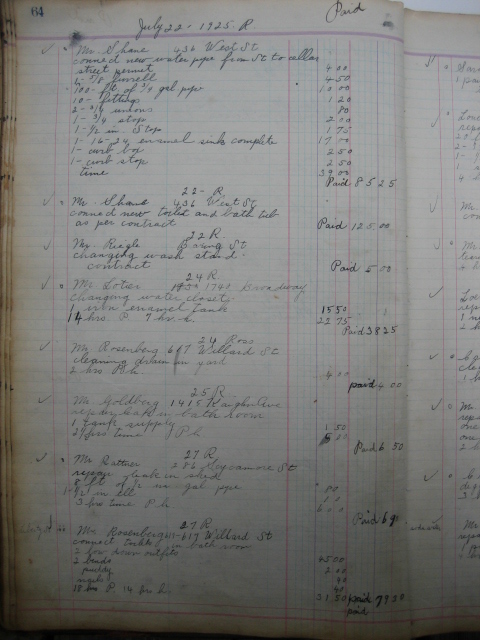 64
July 22 - 1925 R.
Paid
Mr. Shane 436 West St
connect new water pipe from St to cellar
street permit 4 00
4 50
100 - ft. of 3/4 gal pipe 10 00
10 - fittings 1 20
2 - 3/4 unions 80
1 - 3/4 stop 2 00
1 - 1/2 in Stop 1 75
1 - 16-24 enamel sink complete 17 00
1 - curb box 2 50
1 - curb stop 2 50
time 39 00
Paid 85 25
22 - R
Mr. Shane 436 West St
connect new toilet and bath tub
as per contract Paid 125.00
22 R
Mr. Riegle St
changing wash stand
contract Paid 5 00
24 R
Mr. Lotier 1741 Broadway
changing water closet
1 iron enamel tank 15 50
14 hrs. P. 7 hrs. h. 22 75
Paid 38 25
24 Ross
Mr. Rosenberg 617 Willard St
cleaning drain in yard
2 hrs P.h 4 00
paid 4 00
25 R
Mr. Goldberg 1415 Kaighn Ave
repair leak in bath room
1 tank supply 1 50
2 1/2 hrs time P.h 5 00
Paid 6 50
27 R
Mr. Rattner 286 Sycamore St
repair leak in shed
8 ft of 1/2 in gal pipe 80
1 - 1/2 in ell 10
3 hrs time P.h. 6 00
Paid 6 90
27 R
Mr. Rosenberg 611-617 Willard St
connect toilets in bath room
2 low down outfits 45 00
2 bends 2 00
putty 40
40
18 hrs P. 14 hrs h. 31 50 paid 79 30
paid